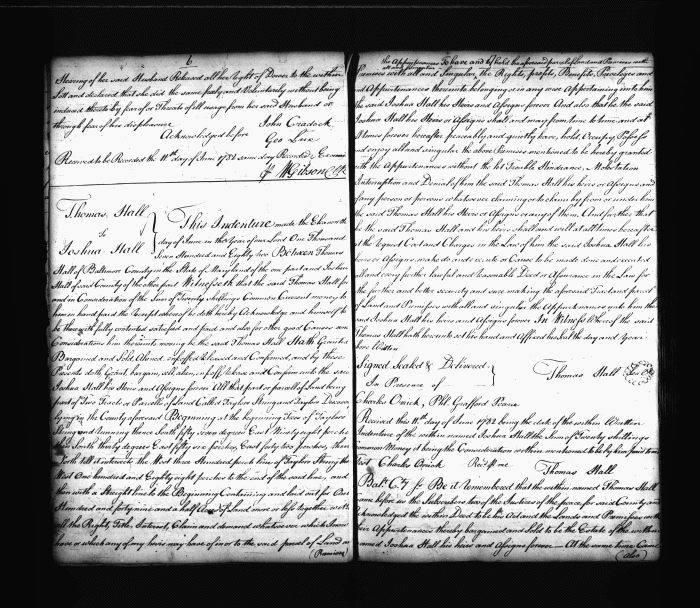 6
Hearing of her said Husband Released all her right of Dower to the within
and declared that she did the same freely and Voluntarily without being
induced thereto by fear or Threats of ill usage from her said Husband or
through fear of his displeasure John Cradock
Acknowledged before Geo Lux
Received to be Recorded the 11th day of June 1782 same day Recorded & Examd
Gibson Clk
Thomas Hall
to
Joshua Hall
This Indenture made the Eleventh
day of June in the Year of our Lord One Thousand
Seven Hundred and Eighty two Between Thomas
Hall of Baltimore County in the State of Maryland of the one part and Joshua
Hall of said County of the other part Witnesseth that the said Thomas Hall for
and in Consideration of the Sum of Twenty shillings Common Current money to
him in hand paid the Receipt whereof he doth hereby Acknowledge and himself to
be therewith fully contented satisfied and paid and also for other good Causes and
Considerations him thereunto moving he the said Thomas Hall Hath Granted
Bargained and Sold Aliened Infeoffed Released and Confirmed, and by these
Presents doth Grant bargain sell alien infeoff release and Confirm unto the said
Joshua Hall his Heirs and Assigns forever All that part or parcel of Land being
part of Two Tracts or Parcells of Land Called Taylors and Taylors
lying in the County aforesaid Beginning at the beginning Tree of Taylors
and running thence South fifty seven degrees East Ninety eight perches
then South thirty degrees East fifty six perches, East forty two perches, then
North till it intersects the West three Hundred perch line of Taylors then
West One hundred and Eighty eight perches to the end of the said line, and
then with a Straight line to the Beginning Containing and laid out for One
Hundred and forty nine and a half Acres of Land more or less together with
all the Right, Title Interest, Claim and demand whatsoever which I now
have or which any of my heirs may have of in or to the said parcel of Land or
(Premises
the Appurtenances To have and to hold the aforesaid parcel of Land and Premises with
all and Singular, the Rights, profits, Benefits, Priveleges and
and Appurtenances thereunto belonging or in any wise Appertaining unto him
the said Joshua Hall his Heirs and Assigns forever And also that he the said
Joshua Hall his Heirs or Assigns shall and may from time to time and at
Times forever hereafter peaceably and quietly have, hold, Occupy, Possess
and enjoy all and singular the above Premises mentioned to be hereby granted
with the Appurtenances without the let Trouble Hindrance, Molestation
Interruption and Denial of him the said Thomas Hall his heirs or Assigns and
of any person or persons whatsoever claiming or to claim by from or under him
the said Thomas Hall his Heirs or Assigns or any of them And further that
he the said Thomas Hall and his heirs shall and will at all times hereafter
at the request Cost and Charges in the Law of him the said Joshua Hall his
heirs or Assigns make do and execute or Cause to be made done and executed
all and every such further lawful and reasonable Deed or Assurance in the Law for
the further and better security and sure making the aforesaid Tract and parcel
of Land and Premises with all and singular the Appurtenances unto him the
said Joshua Hall his heirs and Assigns forever In Witness Whereof the said
Thomas Hall hath hereunto set his hand and Affixed his Seal the day and Year
above Written
Signed Sealed & Delivered
In Presence of
Thomas Hall
Charles Phil Grafford
Received this 11th day of June 1782 being the date of the within Written
Indenture of the within named Joshua Hall the Sum of Twenty shillings
common Money it being the Consideration within mentioned to be by him paid to me
Test Charles Recd me
Thomas Hall
Balt. Cty ss Be it Remembered that the within named Thomas Hall
came before us the Subscribers two of the Justices of the peace for said County and
acknowledged the within Deed to be his Act and the Lands and Premises with
their Appurtenances thereby bargained and Sold to be the Estate of the within
named Joshua Hall his heirs and Assigns forever — At the same time Came
(also)